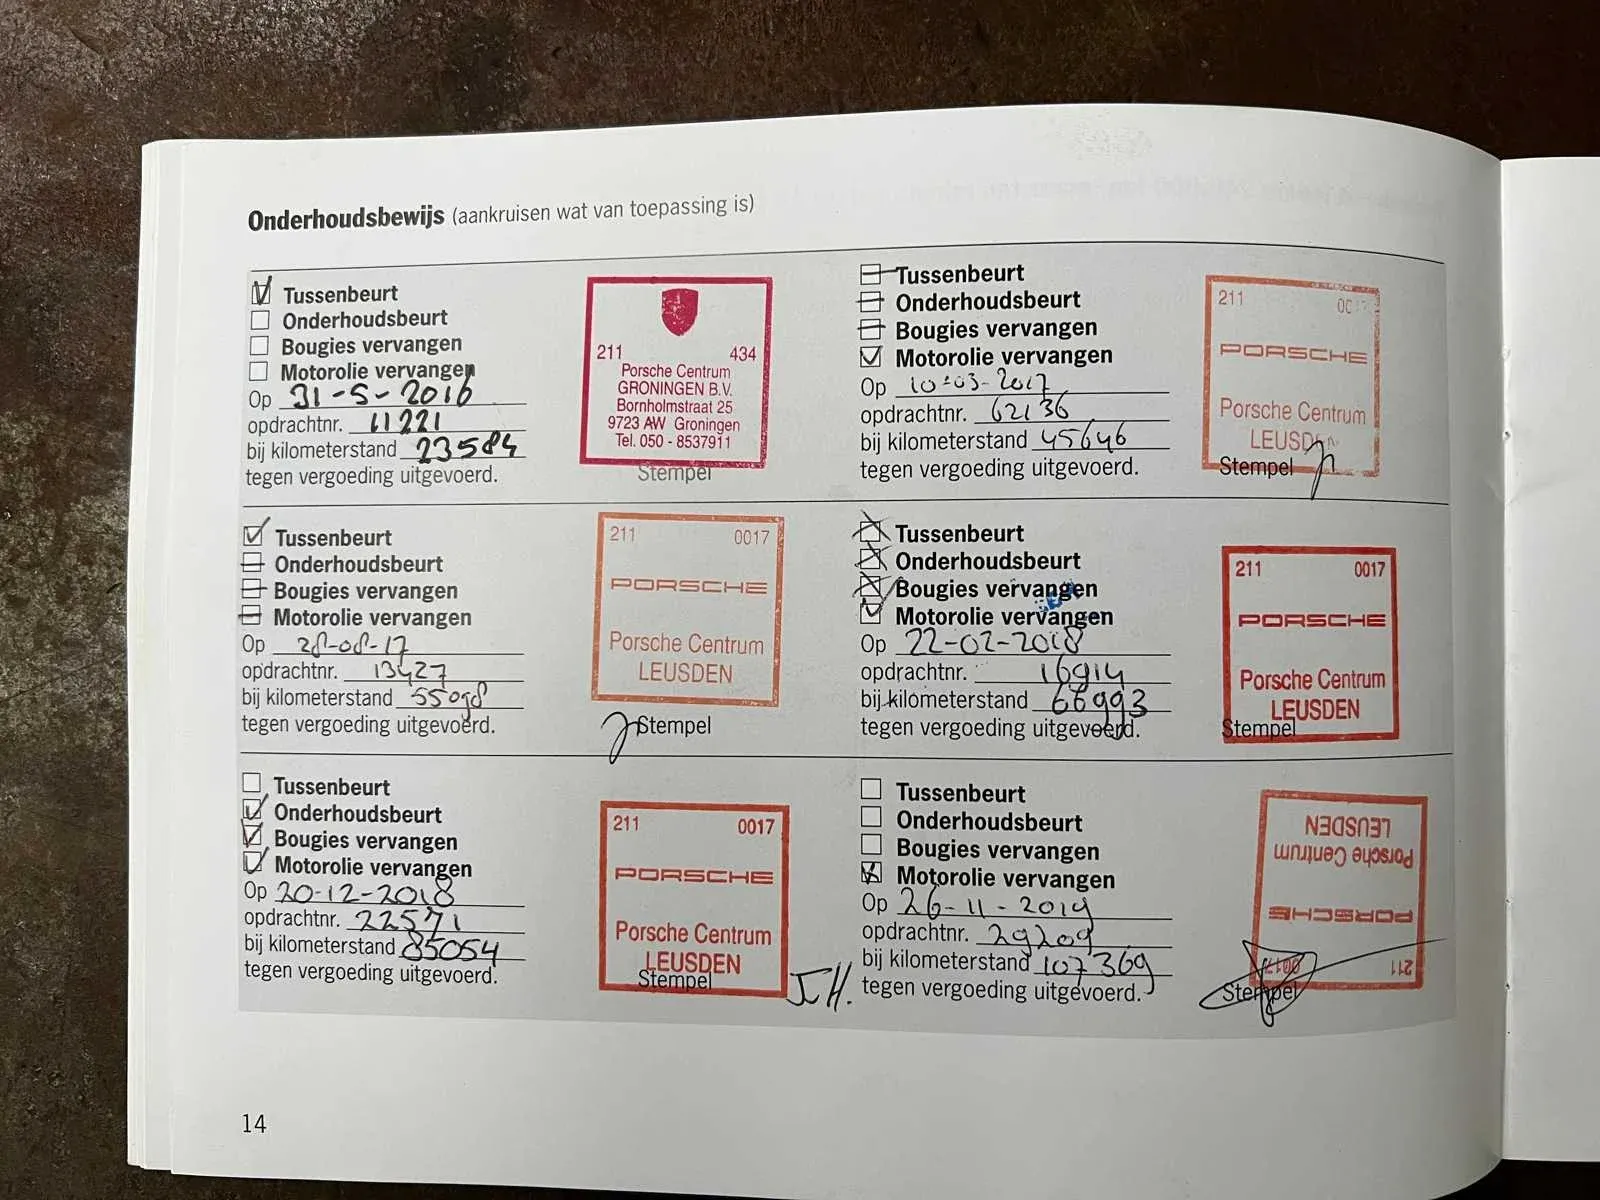 Onderhoudsbewijs (aankruisen wat van toepassing is)
Tussenbeurt
Onderhoudsbeurt
Bougies vervangen
Motorolie vervangen
Op 31-5-2016
opdrachtnr. 11221
bij kilometerstand 23584
tegen vergoeding uitgevoerd.
211 434
Porsche Centrum
GRONINGEN B.V.
Bornholmstraat 25
9723 AW Groningen
Tel. 050 - 8537911
Stempel
Tussenbeurt
Onderhoudsbeurt
Bougies vervangen
Motorolie vervangen
Op 10-03-2017
opdrachtnr. 62136
bij kilometerstand 45646
tegen vergoeding uitgevoerd.
211
PORSCHE
Porsche Centrum
LEUSDEN
Stempel
Tussenbeurt
Onderhoudsbeurt
Bougies vervangen
Motorolie vervangen
Op 28-08-17
opdrachtnr. 13427
bij kilometerstand 55098
tegen vergoeding uitgevoerd.
211 0017
PORSCHE
Porsche Centrum
LEUSDEN
Stempel
Tussenbeurt
Onderhoudsbeurt
Bougies vervangen
Motorolie vervangen
Op 22-02-2018
opdrachtnr. 16914
bij kilometerstand 66993
tegen vergoeding uitgevoerd.
211 0017
PORSCHE
Porsche Centrum
LEUSDEN
Stempel
Tussenbeurt
Onderhoudsbeurt
Bougies vervangen
Motorolie vervangen
Op 20-12-2018
opdrachtnr. 22571
bij kilometerstand 85054
tegen vergoeding uitgevoerd.
211 0017
PORSCHE
Porsche Centrum
LEUSDEN
Stempel
J.H.
Tussenbeurt
Onderhoudsbeurt
Bougies vervangen
Motorolie vervangen
Op 26-11-2019
opdrachtnr. 29209
bij kilometerstand 107369
tegen vergoeding uitgevoerd.
211 0017
PORSCHE
Porsche Centrum
LEUSDEN
Stempel
14